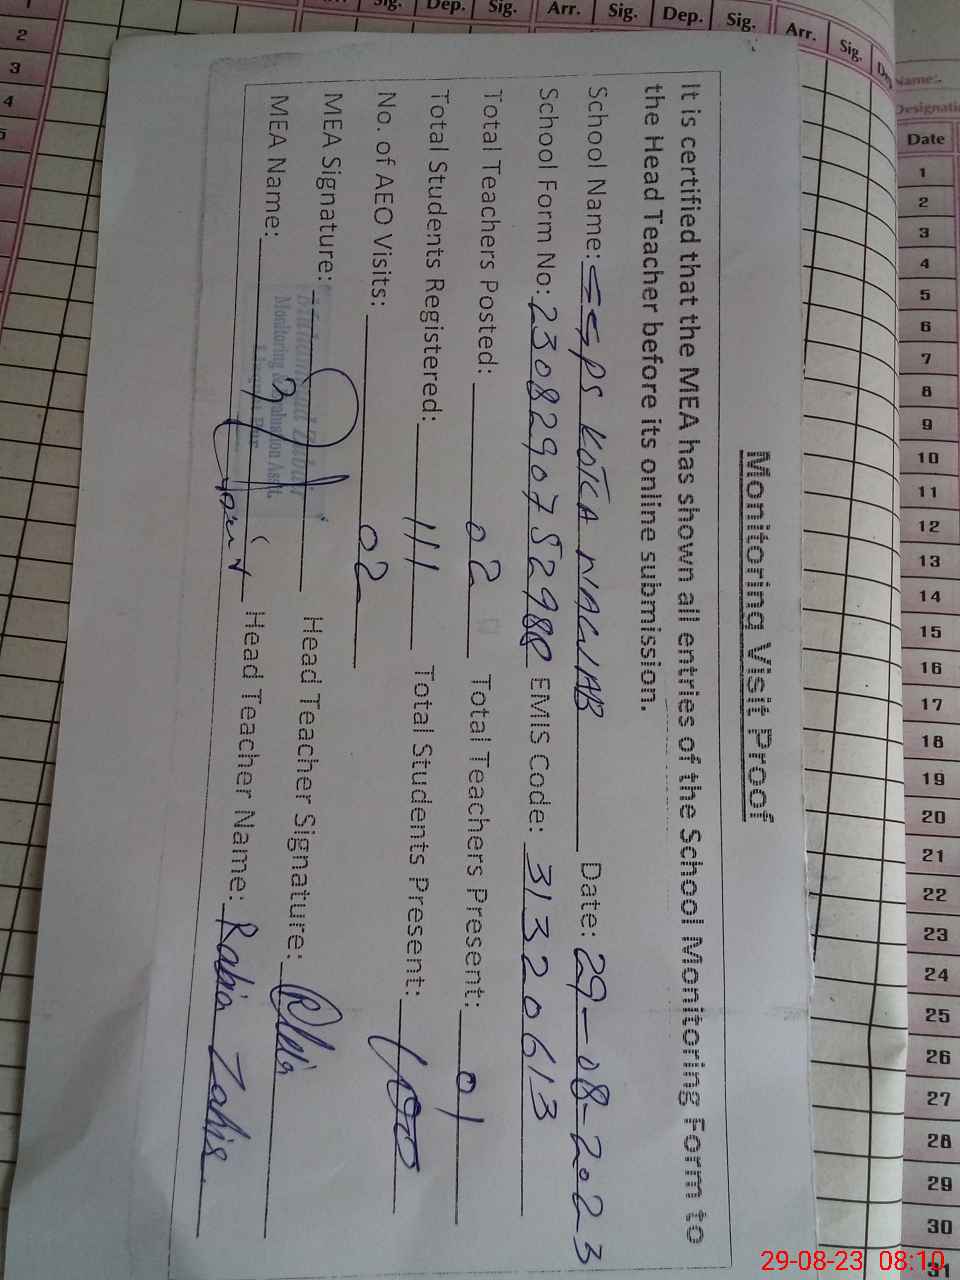 Monitoring Visit Proof
It is certified that the MEA has shown all entries of the School Monitoring Form to
the Head Teacher before its online submission.
School Name: GGPS KOTLA NAWAB Date: 29-08-2023
School Form No: 2308290752988 EMIS Code: 31320613
Total Teachers Posted: 02 Total Teachers Present: 01
Total Students Registered: 111 Total Students Present: 100
No. of AEO Visits: 02
MEA Signature: Head Teacher Signature:
MEA Name: Head Teacher Name: Rabia Zahir
Muhammad Babir
Monitoring Evaluation Asstt.
Arr. Sig. Dep. Sig. Arr. Sig. Dep. Sig. Arr. Sig.
2
3
4
5
Name:
Designati
Date
1
2
3
4
5
6
7
8
9
10
11
12
13
14
15
16
17
18
19
20
21
22
23
24
25
26
27
28
29
30
31
29-08-23 08:10